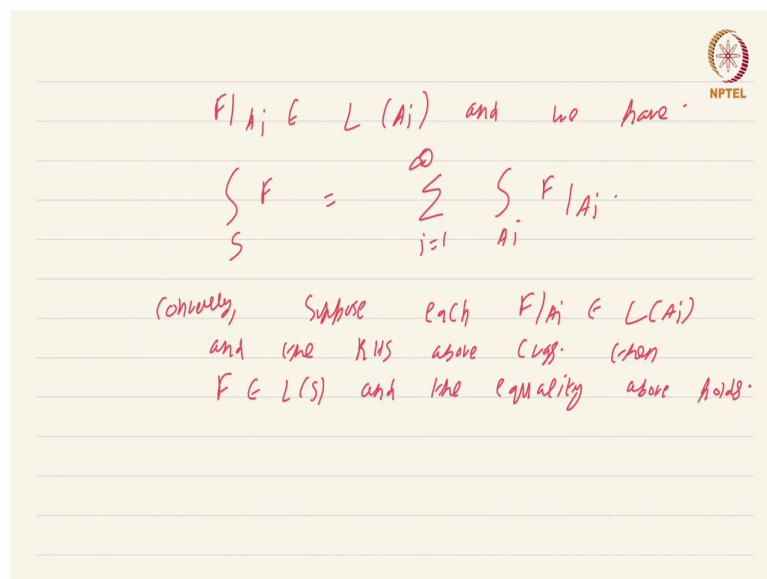 NPTEL
F|Aj ∈ L(Aj) and we have.
∫_S F = ∑_{j=1}^{∞} ∫_{Aj} F|Aj.
Conversely, suppose each F|Aj ∈ L(Aj)
and the RHS above cvgs. then
F ∈ L(S) and the equality above holds.